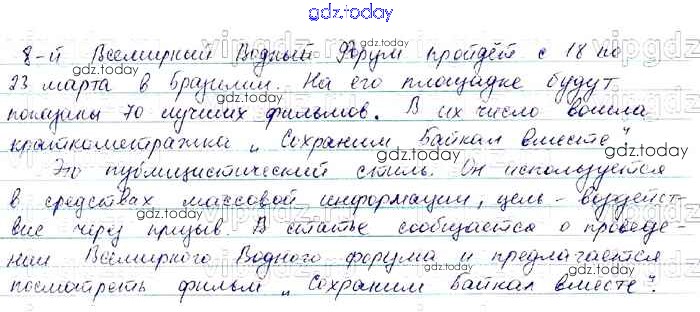 gdz.today
8-й Всемирный Водный Форум пройдёт с 18 по
23 марта в Бразилии. На его площадке будут
показаны 70 лучших фильмов. В их число вошла
короткометражка „Сохраним Байкал вместе"
Это публицистический стиль. Он используется
в средствах массовой информации, цель - воздейст-
вие через призыв. В статье сообщается о проведе-
нии Всемирного Водного форума и предлагается
посмотреть фильм „Сохраним Байкал вместе".